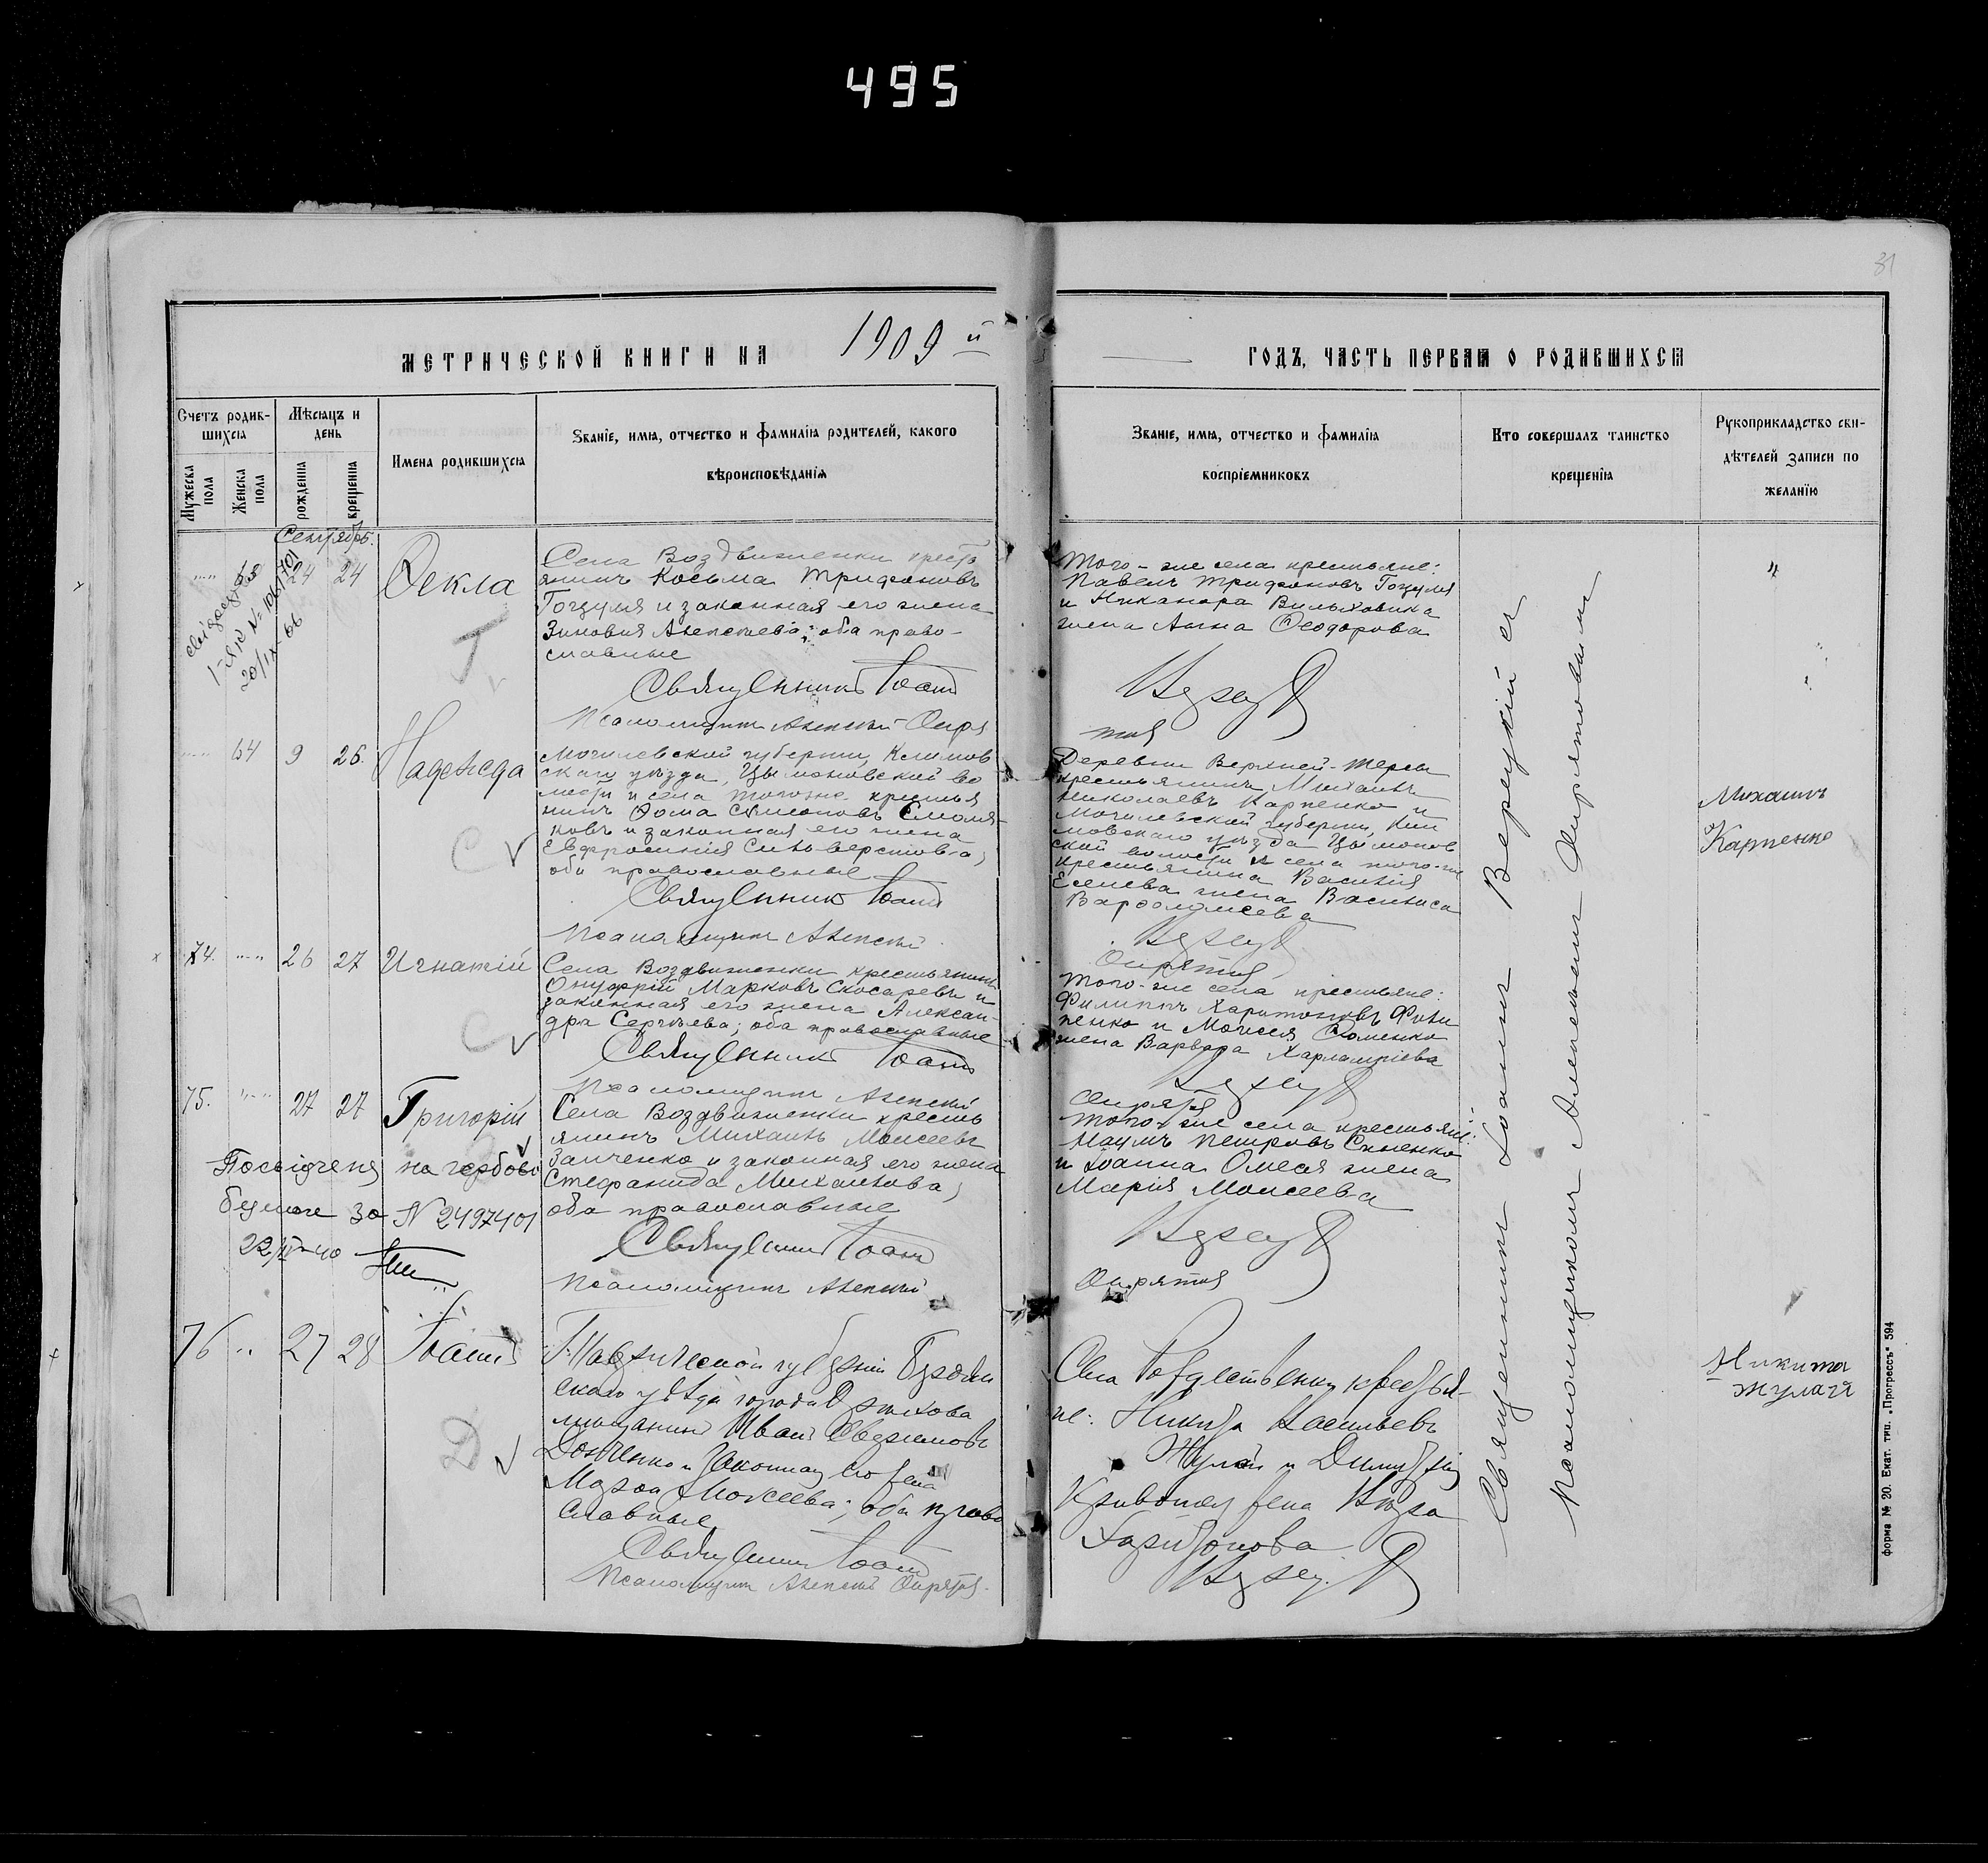 495
31
МЕТРИЧЕСКОЙ КНИГИ НА 1909 й
ГОДЪ, ЧАСТЬ ПЕРВАЯ О РОДИВШИХСЯ
Счетъ родив-
шихся
Мужеска пола
Женска пола
Мѣсяцъ и
день
рожденія
крещенія
Имена родившихся
Званіе, имя, отчество и фамилія родителей, какого
вѣроисповѣданія
Званіе, имя, отчество и фамилія
воспріемниковъ
Кто совершалъ таинство
крещенія
Рукоприкладство сви-
дѣтелей записи по
желанію
Сентябрь.
24 24 Ѳекла
20/IX-66
Села Воздвиженки кресть
янинъ Косьма Трифоновъ
Гоцуля и законная его жена
Зиновія Алексѣева; оба право-
славные
Священникъ Іоаннъ
Псаломщикъ Алексѣй Опря
Того-же села крестьяне:
Павелъ Трифоновъ Гоцуля
и Никанора Вильховика
жена Анна Ѳеодорова
Верецкій
тов
64 9 26. Надежда
Могилевской губерніи, Климов
скаго уѣзда, во
лости и села того-же крестья
нинъ Ѳома Симеоновъ Смоля-
ковъ и законная его жена
Евфросинія Сильверстова,
оба православные
Священникъ Іоаннъ
Псаломщикъ Алексѣй
Деревни Верхней-Терсы
крестьянинъ Михаилъ
Николаевъ Карпенко и
Могилевской губерніи, Кли
мовскаго уѣзда
ской волости и села того-же
крестьянина Василія
жена Василиса
Варфоломеева
Верецкій
Опрятов
Михаилъ
Карпенко
74. 26 27 Игнатій
Села Воздвиженки крестьянинъ
Онуфрій Марковъ Скосаревъ и
законная его жена Алексан-
дра Сергѣева; оба православные
Священникъ Іоаннъ
Псаломщикъ Алексѣй
Того-же села крестьяне:
Филиппъ Харитоновъ Фили
пенко и Моисея Фоменко
жена Варвара Харлампіева
Верецкій
Опрятов
75. 27 27 Григорій
Посвідчення на гербово
бумаге за N 2497401
22/IV-40
Села Воздвиженки кресть
янинъ Михаилъ Моисеевъ
Заиченко и законная его жена
Стефанида Михаилова,
оба православные
Священникъ Іоаннъ
Псаломщикъ Алексѣй
Того-же села крестьяне:
Наумъ Петровъ Синенко
и Іоанна Омеля жена
Марія Моисеева
Верецкій
Опрятов
76 27 28 Іоаннъ
Таврической губерніи Бердян
скаго уѣзда города Орѣхова
мѣщанинъ Иванъ Евфимовъ
Донченко и законная его жена
Марѳа Моисеева; оба право
славные
Священникъ Іоаннъ
Псаломщикъ Алексѣй Опрятов.
Села Рождественки крестья-
не: Никита Васильевъ
Жулай и Димитрія
жена Вѣра
Харитонова
Верецкій
Никита
Жулай
Священникъ Іоаннъ Верецкій съ
псаломщикомъ Алексѣемъ Опрятовымъ
Форма № 20. Екат. тип. „Прогрессъ" 594